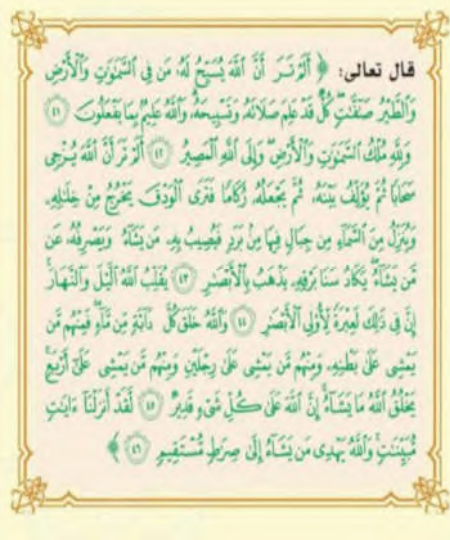 قال تعالى: ﴿ أَلَمْ تَرَ أَنَّ ٱللَّهَ يُسَبِّحُ لَهُۥ مَن فِي ٱلسَّمَٰوَٰتِ وَٱلْأَرْضِ
وَٱلطَّيْرُ صَٰٓفَّٰتٍ كُلٌّ قَدْ عَلِمَ صَلَاتَهُۥ وَتَسْبِيحَهُۥ وَٱللَّهُ عَلِيمٌۢ بِمَا يَفْعَلُونَ ٤١
وَلِلَّهِ مُلْكُ ٱلسَّمَٰوَٰتِ وَٱلْأَرْضِ وَإِلَى ٱللَّهِ ٱلْمَصِيرُ ٤٢ أَلَمْ تَرَ أَنَّ ٱللَّهَ يُزْجِي
سَحَابًا ثُمَّ يُؤَلِّفُ بَيْنَهُۥ ثُمَّ يَجْعَلُهُۥ رُكَامًا فَتَرَى ٱلْوَدْقَ يَخْرُجُ مِنْ خِلَٰلِهِۦ
وَيُنَزِّلُ مِنَ ٱلسَّمَآءِ مِن جِبَالٍ فِيهَا مِنۢ بَرَدٍ فَيُصِيبُ بِهِۦ مَن يَشَآءُ وَيَصْرِفُهُۥ عَن
مَّن يَشَآءُ يَكَادُ سَنَا بَرْقِهِۦ يَذْهَبُ بِٱلْأَبْصَٰرِ ٤٣ يُقَلِّبُ ٱللَّهُ ٱلَّيْلَ وَٱلنَّهَارَ
إِنَّ فِي ذَٰلِكَ لَعِبْرَةً لِّأُو۟لِي ٱلْأَبْصَٰرِ ٤٤ وَٱللَّهُ خَلَقَ كُلَّ دَآبَّةٍ مِّن مَّآءٍ فَمِنْهُم مَّن
يَمْشِي عَلَىٰ بَطْنِهِۦ وَمِنْهُم مَّن يَمْشِي عَلَىٰ رِجْلَيْنِ وَمِنْهُم مَّن يَمْشِي عَلَىٰٓ أَرْبَعٍ
يَخْلُقُ ٱللَّهُ مَا يَشَآءُ إِنَّ ٱللَّهَ عَلَىٰ كُلِّ شَيْءٍ قَدِيرٌ ٤٥ لَّقَدْ أَنزَلْنَآ ءَايَٰتٍ
مُّبَيِّنَٰتٍ وَٱللَّهُ يَهْدِي مَن يَشَآءُ إِلَىٰ صِرَٰطٍ مُّسْتَقِيمٍ ٤٦ ﴾